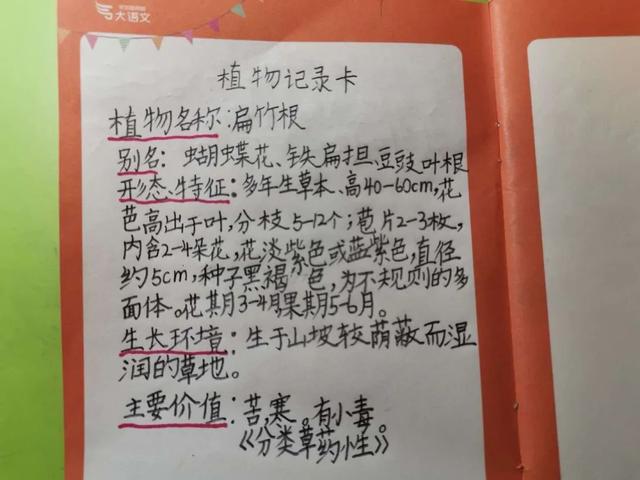 大语文
植物记录卡
植物名称：扁竹根
别名：蝴蝶花、铁扁担、豆豉叶根
形态、特征：多年生草本、高40-60cm，花
芭高出于叶，分枝5-12个；苞片2-3枚，
内含2-4朵花，花淡紫色或蓝紫色，直径
约5cm，种子黑褐色，为不规则的多
面体。花其月3-4月，果其月5-6月。
生长环境：生于山坡较荫蔽而湿
润的草地。
主要价值：苦，寒。有小毒。
《分类草药性》